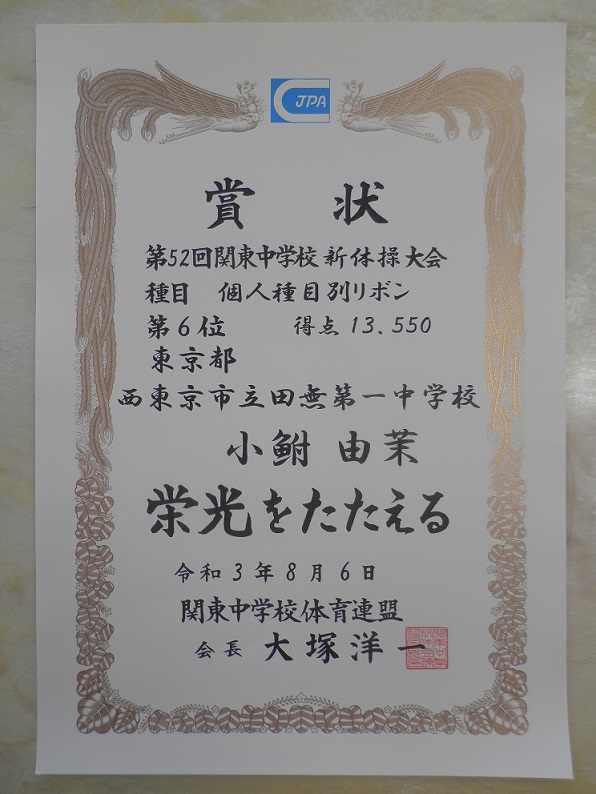 JPA
賞状
第52回関東中学校新体操大会
種目 個人種目別リボン
第6位 得点 13.550
東京都
西東京市立田無第一中学校
小鮒 由茉
栄光をたたえる
令和3年8月6日
関東中学校体育連盟
会長 大塚洋一